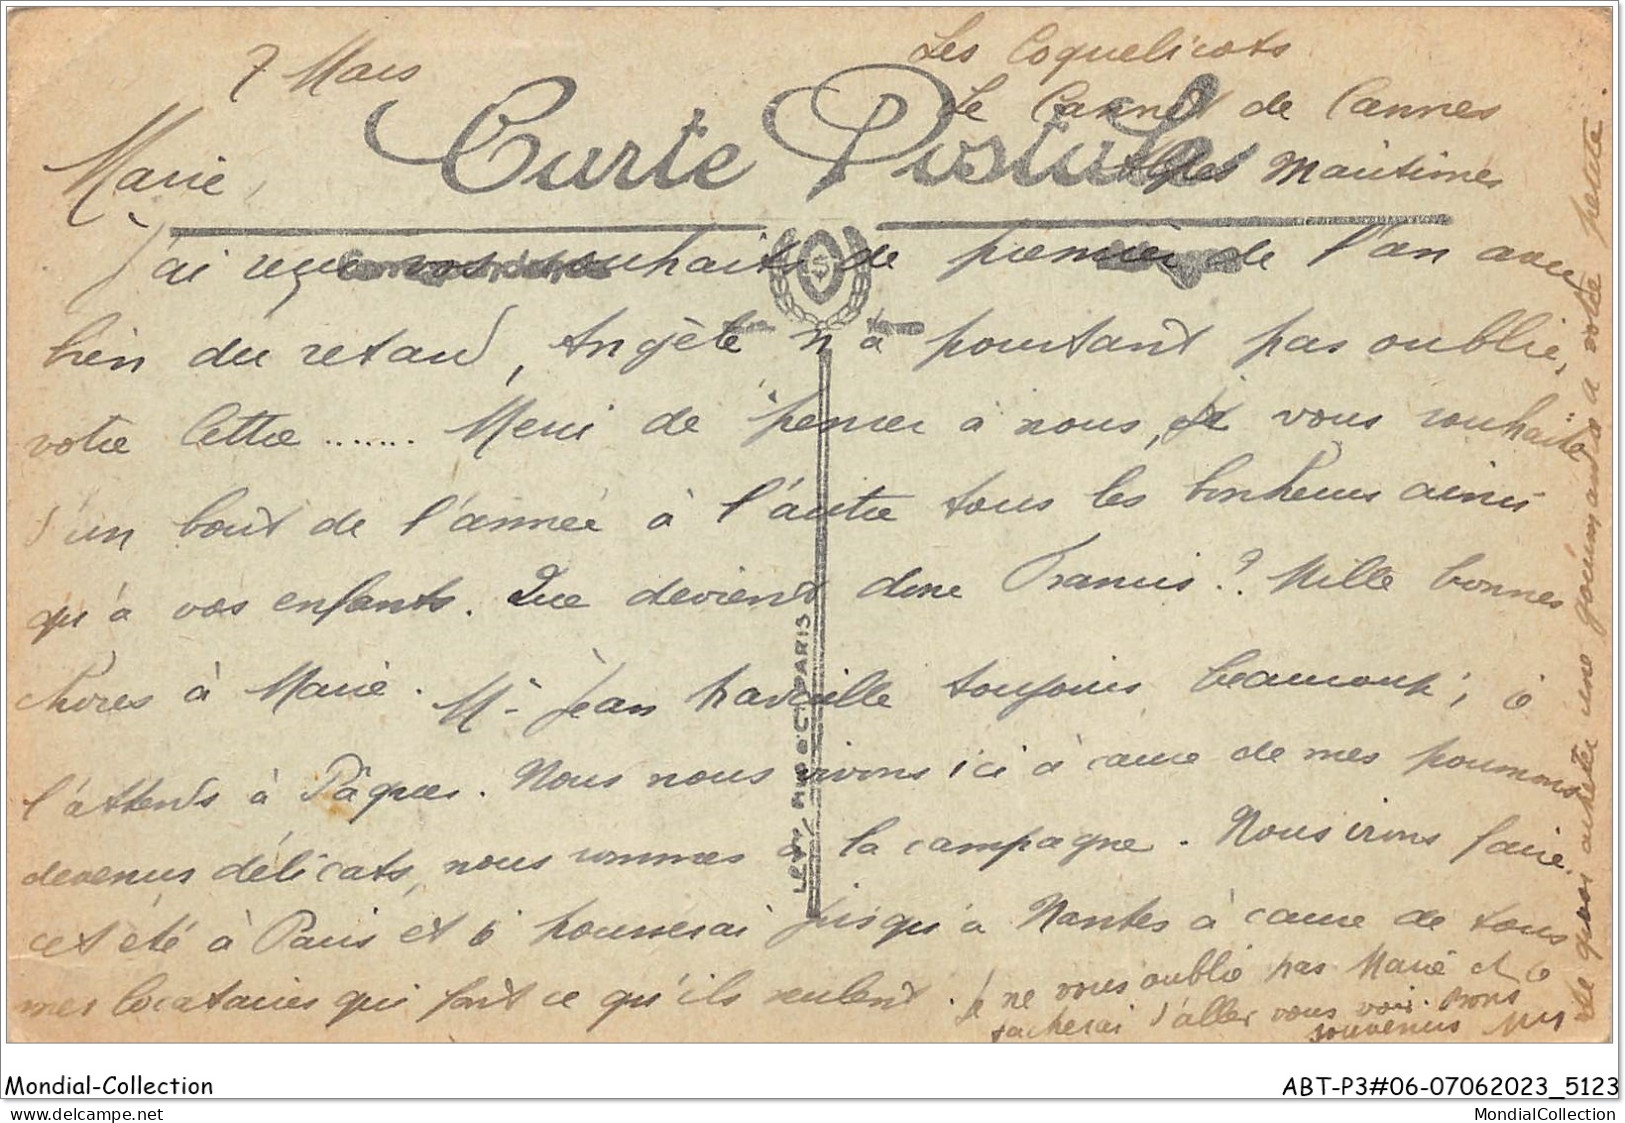 7 Mars
Les Coquelicots
Le Cannet de Cannes
Alpes Maritimes
Carte Postale
Marie,
J'ai reçu vos souhaits de premier de l'an avec
bien du retard, Angèle n'a pourtant pas oublié,
votre lettre ....... Merci de penser à nous, je vous souhaite
d'un bout de l'année à l'autre tous les bonheurs ainsi
qu'à vos enfants. Que devient donc Francis? Mille bonnes
choses à Marie. Mr Jean travaille toujours beaucoup; je
l'attends à Pâques. Nous nous vivons ici à cause de mes poumons
devenus délicats, nous sommes à la campagne. Nous irons faire
cet été à Paris et je pousserai jusqu'à Nantes à cause de tous
mes locataires qui font ce qu'ils veulent. Je ne vous oublie pas Marie et je
tacherai d'aller vous voir. Bons
souvenirs
de quoi acheter une gourmandise à votre petite.
LEVY & CIE PARIS
Mondial-Collection
ABT-P3#06-07062023_5123
delcampe.net
MondialCollection